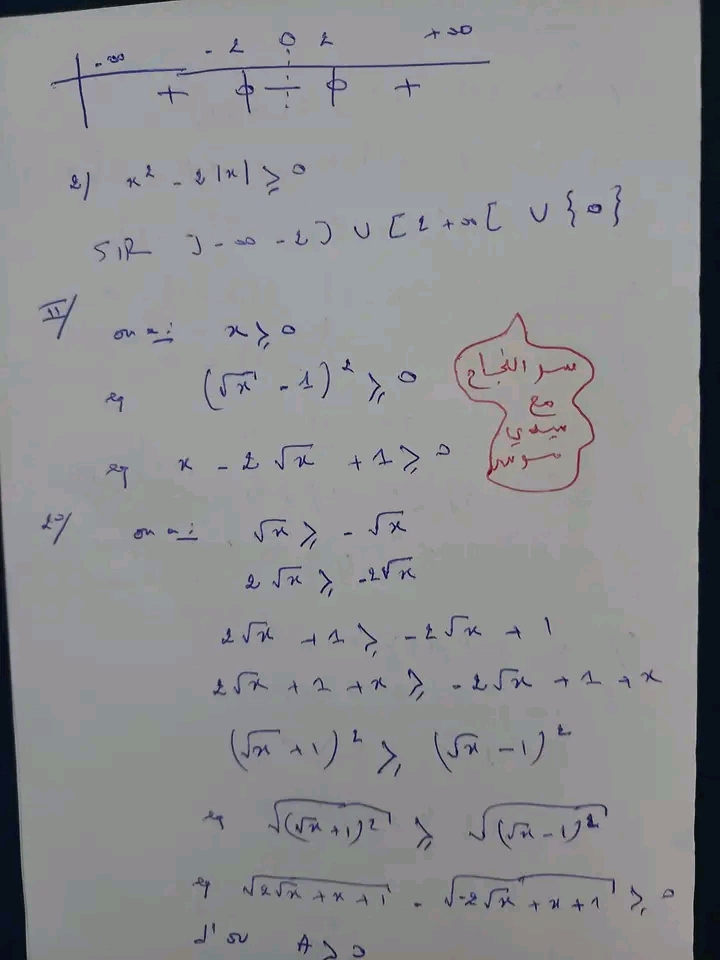 -∞ -2 0 2 +∞
+ ϕ — ϕ +
2) x² - 2|x| ⩾ 0
SIR ]-∞ -2] ∪ [2 +∞[ ∪ {0}
II/ on a : x ⩾ 0
eq (√x - 1)² ⩾ 0
eq x - 2√x + 1 ⩾ 0
سر النجاح
مع
سيدي
2°/ on a : √x ⩾ -√x
2√x ⩾ -2√x
2√x + 1 ⩾ -2√x + 1
2√x + 1 + x ⩾ -2√x + 1 + x
(√x + 1)² ⩾ (√x - 1)²
eq √((√x + 1)²) ⩾ √((√x - 1)²)
eq √(2√x + x + 1) - √(-2√x + x + 1) ⩾ 0
d'où A ⩾ 0